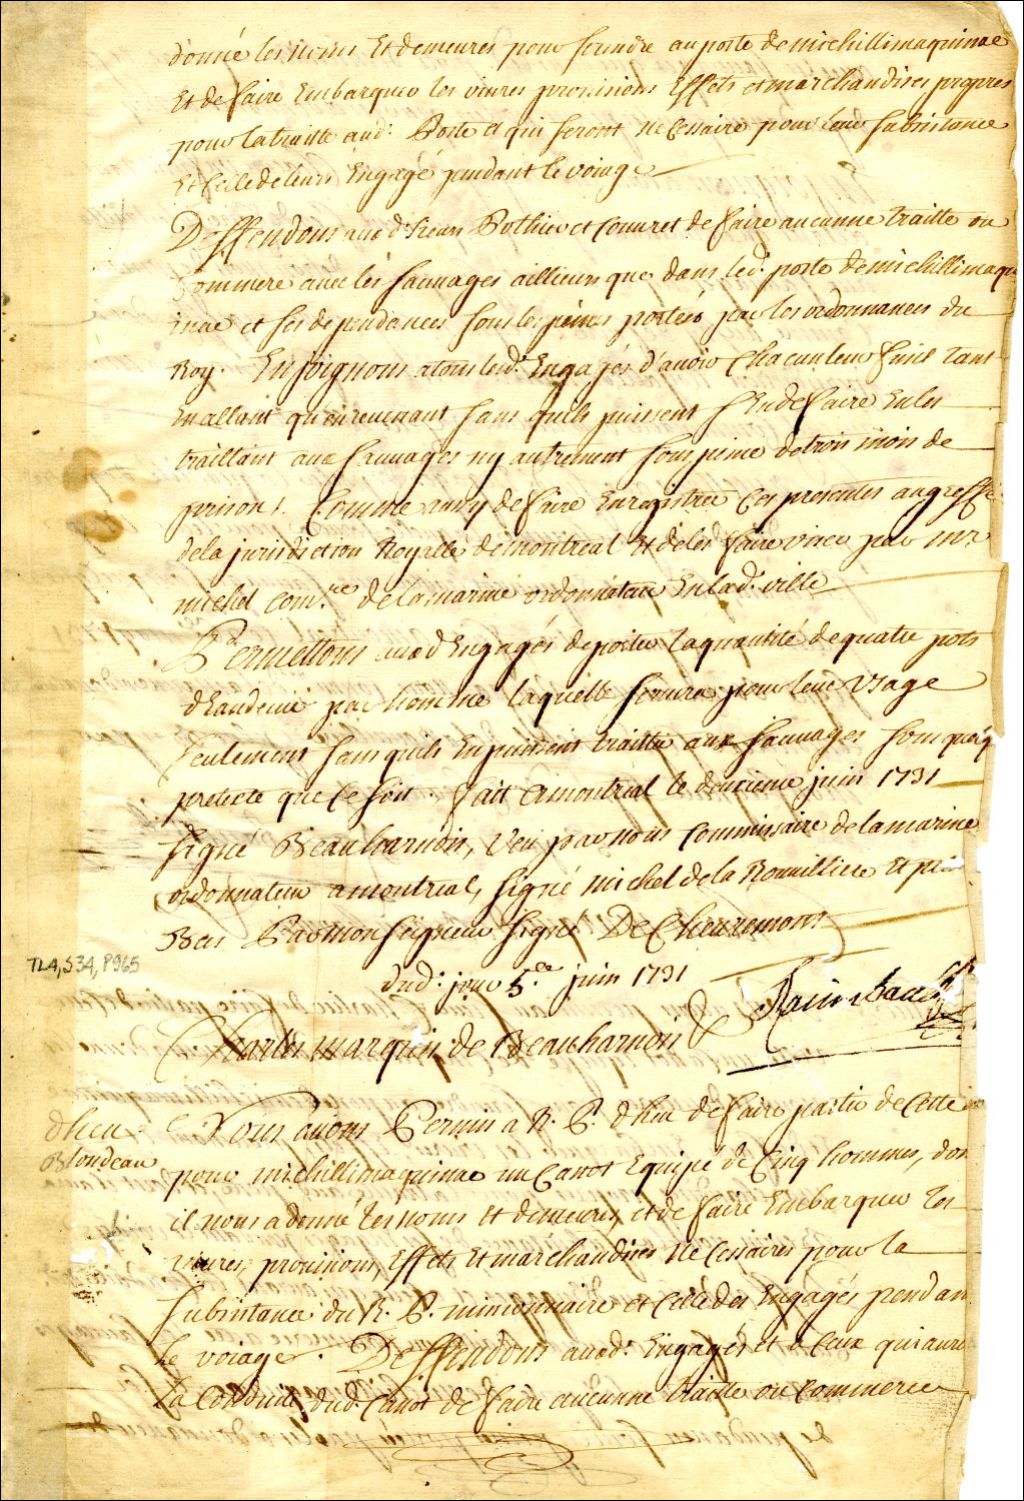 donné les noms Et demeures pour se rendre au poste de michillimaquinac
Et de faire Embarquer les vivres provisions Effets et marchandises propres
pour la traitte aud. Poste et qui seront necessaire pour leur subsistance
Et celle de leurs Engagé pendant le voiage
Deffendons aux d. Sieurs Pothier et Couvret de faire aucunne traitte ou
Commerce avec les sauvages ailleurs que dans led. poste de michillimaqui
nac et ses dependances sous les peines portées par les ordonnances du
Roy. Enjoignons a tous lesd. Engagés d'avoir Chacun leur fusil tant
En allant qu'en revenant sans quils puissent s'En defaire En les
traittant aux sauvages ny autrement sous peine de trois mois de
prison. Comme aussy de faire Enregistrer Ces presentes au greffe
de la jurisdiction Royalle de montreal Et de les faire viser par mr
michel comre. de la marine ordonnateur En lad. ville
Permettons aux d Engagés de porter la quantité de quatre pots
d'Eaudevie par homme laquelle servira pour leur Usage
seulement sans quils En puissent traitter aux sauvages sous quelq
pretexte que ce soit. fait a montreal le deuxieme juin 1731
signé Beauharnois, Veu par nous Commissaire de la marine
ordonnateur a montreal, signé michel de la Rouvilliere Et plus
Bas Par monseigneur signé De Chevremont
Dud. jour 5.e juin 1731
TL4,S34,P965
Charles marquis de Beauharnois &
dheu
Blondeau
Nous avons Permis a R. P. dheu de faire partir de Cette
pour michillimaquinac un Canot Equipé de Cinq hommes, don
il nous a donné les noms Et demeures et de faire Embarquer les
vivres, provisions, Effets Et marchandises neCessaires pour la
subsistance du R. P. missionnaire et Celle des Engagés pendan
le voiage. Deffendons aux d. Engagés et a Ceux qui auro
La Conduite dud. Canot de faire aucunne traitte ou Commerce